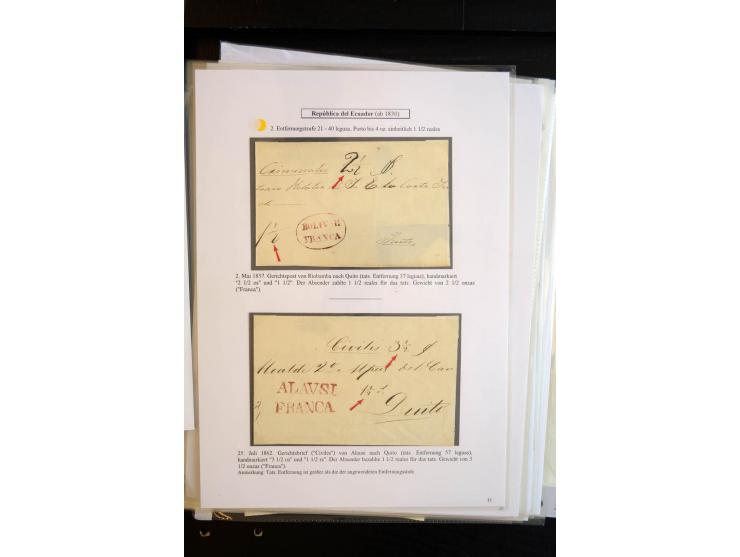 República del Ecuador (ab 1830)
2. Entfernungstrufe 21 - 40 leguas, Porto bis 4 oz. einheitlich 1 1/2 reales
Criminales 2 1/2
1 1/2
BOLIVAR
FRANCA
Quito
2. Mai 1857. Gerichtspost von Riobamba nach Quito (tats. Entfernung 37 leguas), handmarkiert
"2 1/2 os" und "1 1/2". Der Absender zahlte 1 1/2 reales für das tats. Gewicht von 2 1/2 onzas
("Franca").
Civiles 3 1/2
Alcalde 2º Mpal del Can
ALAUSI
FRANCA
1 1/2 r
Quito
25. Juli 1862. Gerichtsbrief ("Civiles") von Alausi nach Quito (tats. Entfernung 57 leguas),
handmarkiert "3 1/2 os" und "1 1/2 rs". Der Absender bezahlte 1 1/2 reales für das tats. Gewicht von 3
1/2 onzas ("Franca").
Anmerkung: Tats. Entfernung ist größer als die der angewendeten Entfernungsstufe